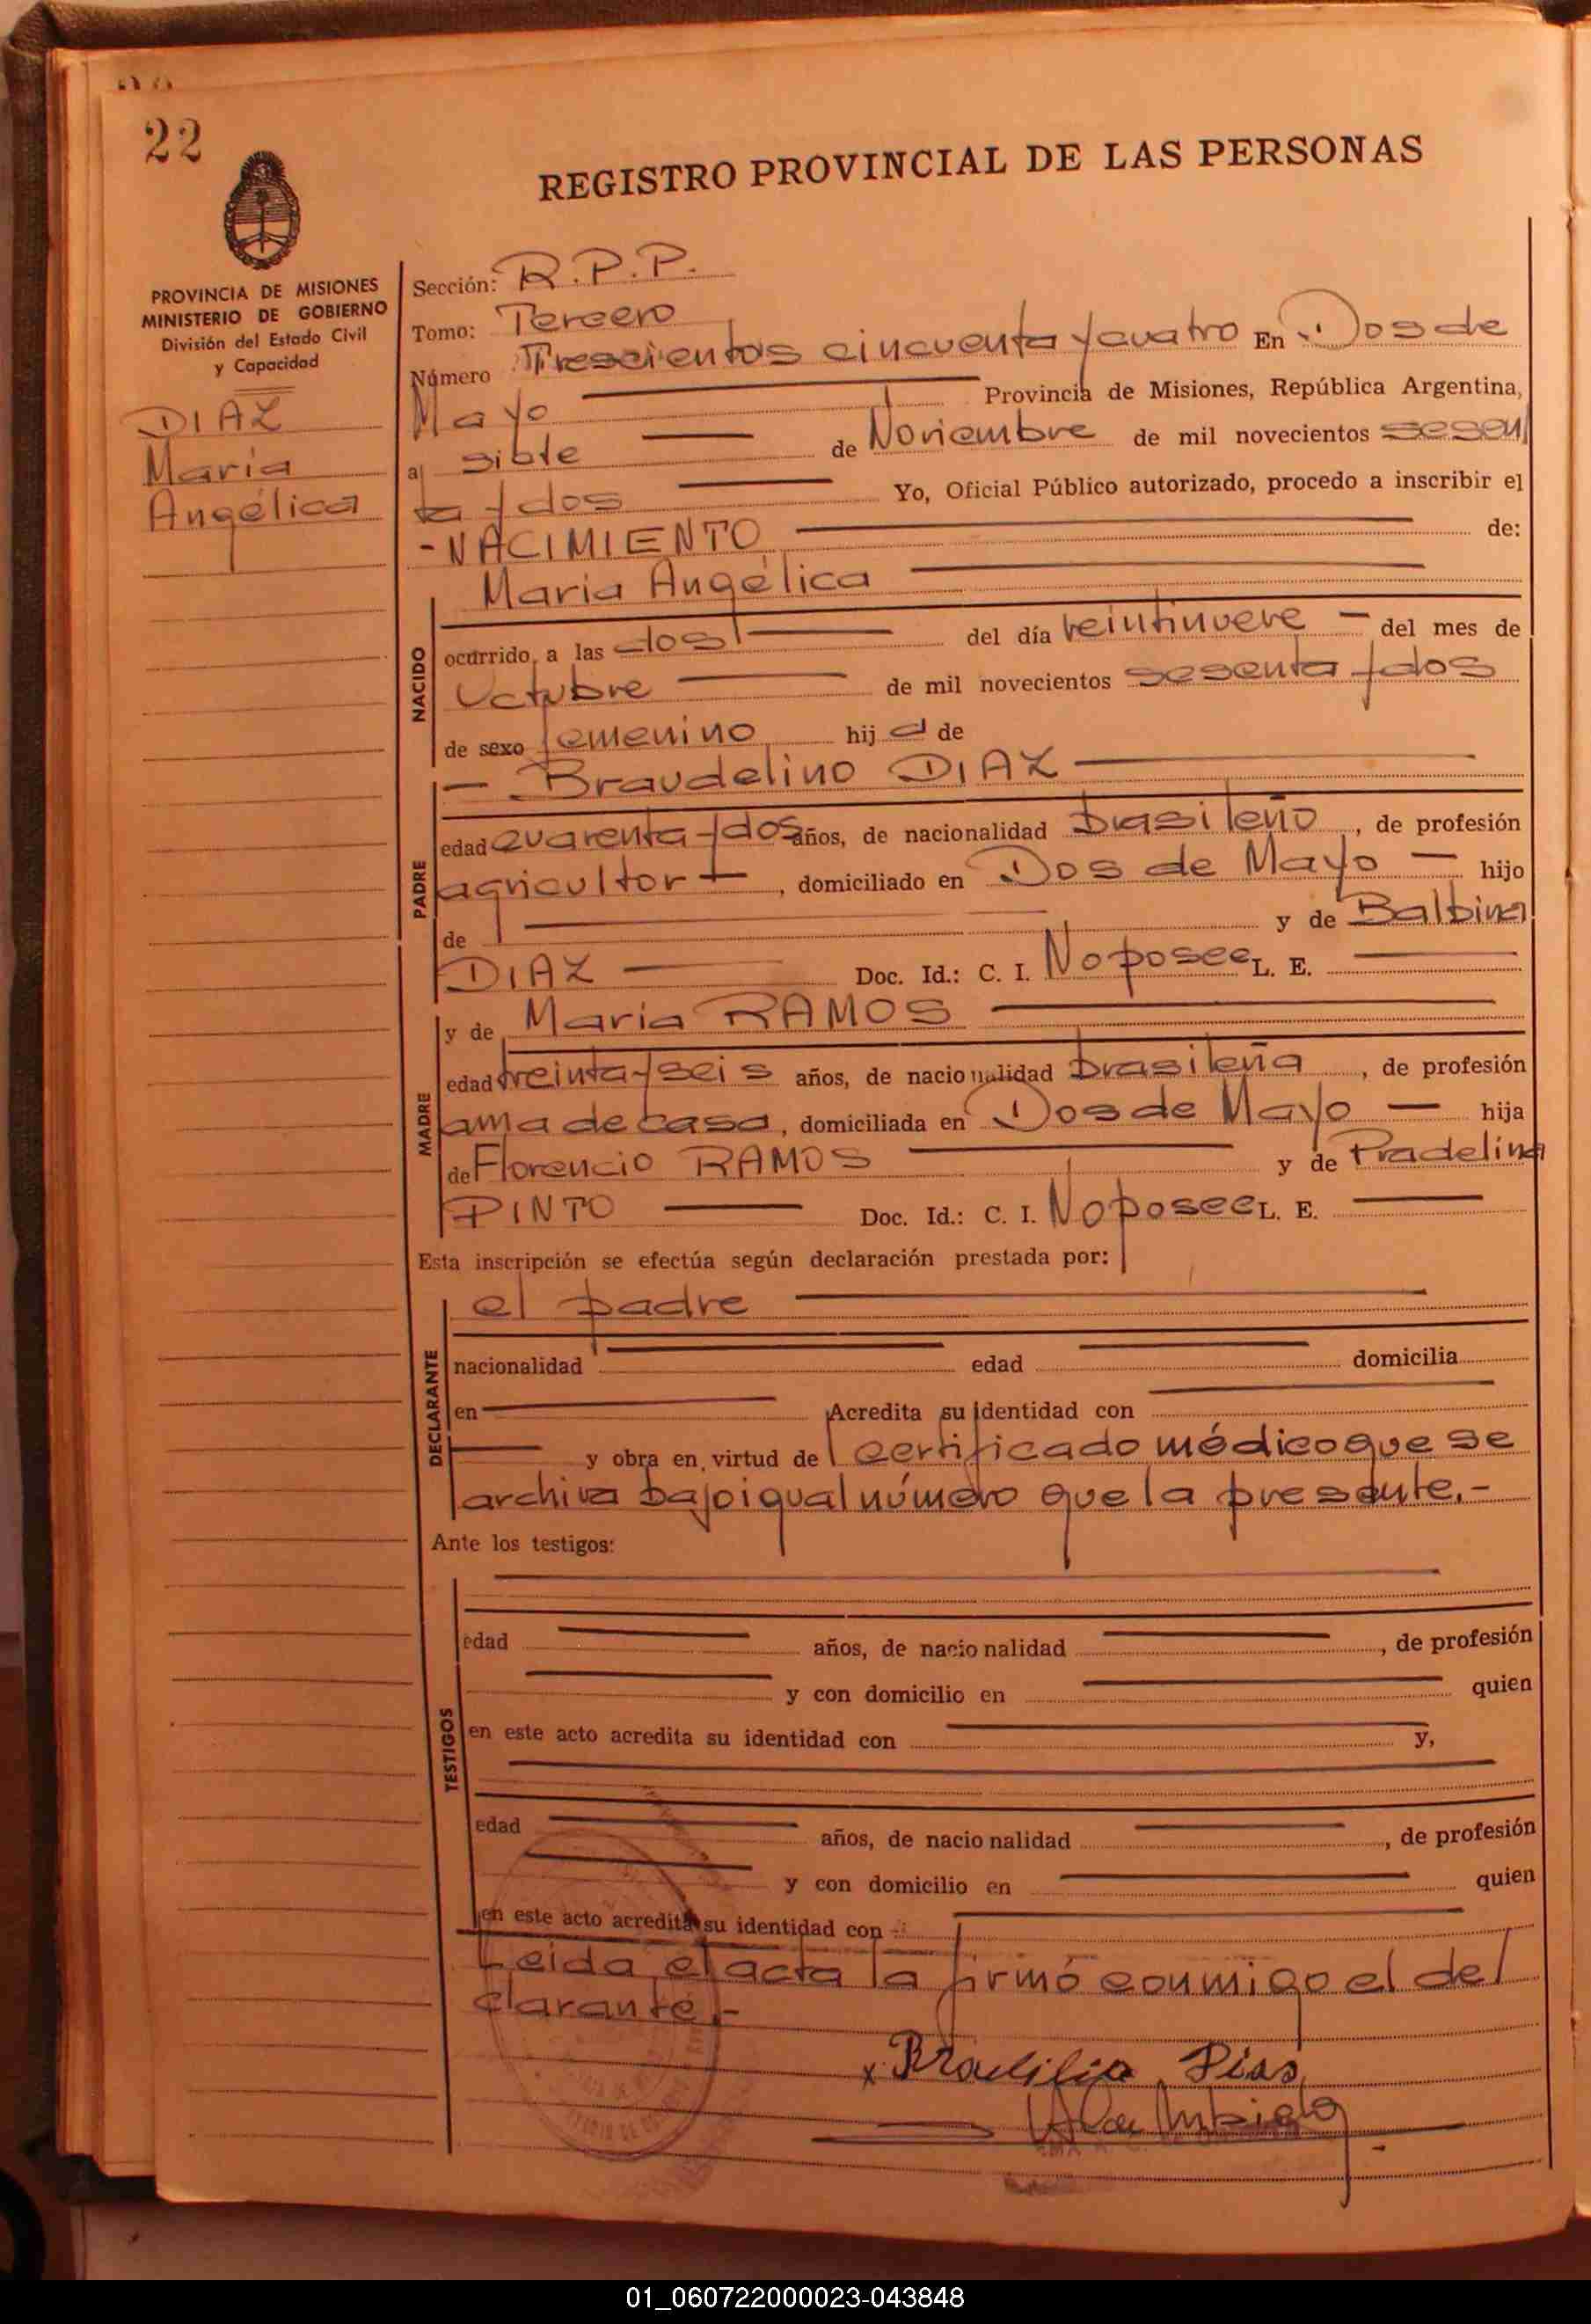 22
REGISTRO PROVINCIAL DE LAS PERSONAS
PROVINCIA DE MISIONES
MINISTERIO DE GOBIERNO
División del Estado Civil
y Capacidad
DIAZ
María
Angélica
Sección: R.P.P.
Tomo: Tercero
Número Trescientos cincuenta y cuatro En Dos de
Mayo Provincia de Misiones, República Argentina,
al siete de Noviembre de mil novecientos sesen
ta y dos Yo, Oficial Público autorizado, procedo a inscribir el
-NACIMIENTO de:
María Angélica
NACIDO
ocurrido, a las dos del día veintinueve - del mes de
Octubre de mil novecientos sesenta y dos
de sexo femenino hija de
- Braudelino DIAZ
PADRE
edad cuarenta y dos años, de nacionalidad brasileño, de profesión
agricultor, domiciliado en Dos de Mayo - hijo
de y de Balbina
DIAZ Doc. Id.: C. I. No posee L. E.
MADRE
y de María RAMOS
edad treinta y seis años, de nacionalidad brasileña, de profesión
ama de casa, domiciliada en Dos de Mayo - hija
de Florencio RAMOS y de Pradelina
PINTO Doc. Id.: C. I. No posee L. E.
Esta inscripción se efectúa según declaración prestada por:
DECLARANTE
el padre
nacionalidad edad domicilia
en Acredita su identidad con
y obra en virtud de certificado médico que se
archiva bajo igual número que la presente.-
Ante los testigos:
TESTIGOS
edad años, de nacionalidad , de profesión
y con domicilio en quien
en este acto acredita su identidad con y,
edad años, de nacionalidad , de profesión
y con domicilio en quien
en este acto acredita su identidad con
Leida el acta la firmó conmigo el de
clarante.-
x Dias
01_060722000023-043848